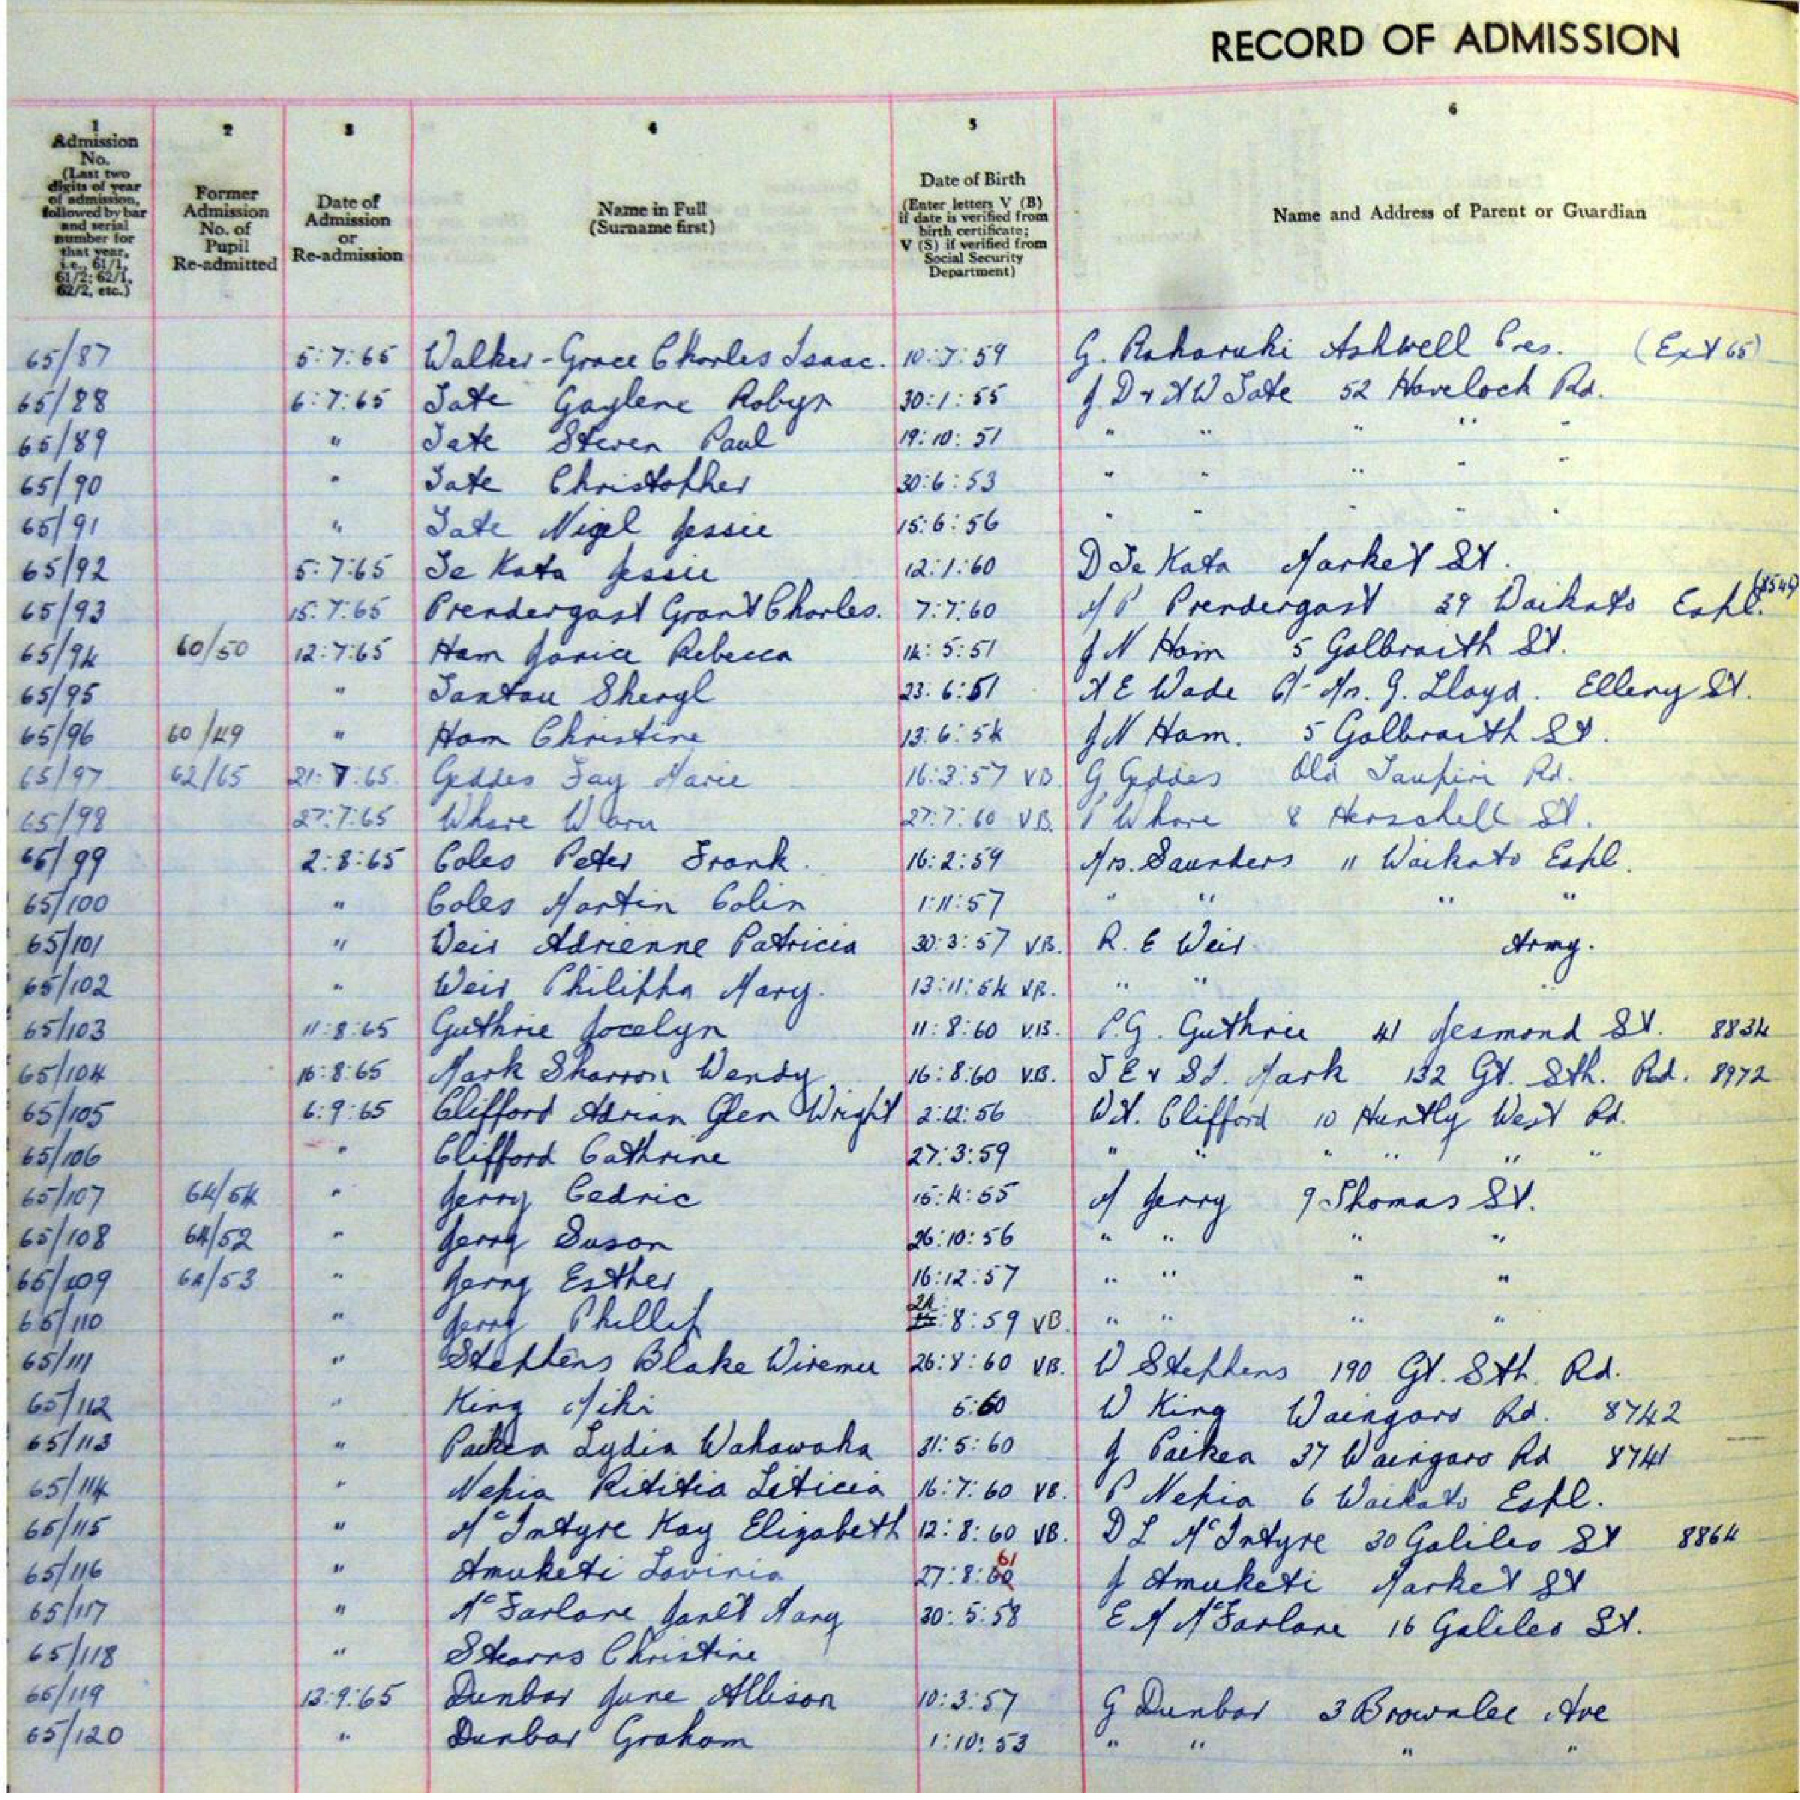 RECORD OF ADMISSION
1 2 3 4 5 6
Admission No. (Last two digits of year of admission, followed by bar and serial number for that year, i.e., 61/1, 61/2; 62/1, 62/2, etc.)
Former Admission No. of Pupil Re-admitted
Date of Admission or Re-admission
Name in Full (Surname first)
Date of Birth (Enter letters V (B) if date is verified from birth certificate; V (S) if verified from Social Security Department)
Name and Address of Parent or Guardian
65/87 5:7:65 Walker-Grace Charles Isaac. 10:7:59 G. Raharuhi Ashwell Cres. (Ext 65)
65/88 6:7:65 Tate Gaylene Robyn 30:1:55 J. D & N W Tate 52 Havelock Rd.
65/89 " Tate Steven Paul 19:10:51 " " " " "
65/90 " Tate Christopher 30:6:53 " " " " "
65/91 " Tate Nigel Jessie 15:6:56 " " " " "
65/92 5:7:65 Te Kata Jessie 12:1:60 D Te Kata Market St.
65/93 15:7:65 Prendergast Grant Charles. 7:7:60 M P Prendergast 39 Waikato Espl.
65/94 60/50 12:7:65 Ham Janice Rebecca 14:5:51 J N Ham 5 Galbraith St.
65/95 " Tantau Sheryl 23:6:51 N E Wade C/- Mrs. G. Lloyd. Ellery St.
65/96 60/49 " Ham Christine 13:6:54 J N Ham. 5 Galbraith St.
65/97 62/65 21:7:65 Geddes Fay Marie 16:3:57 VB G Geddes Old Taupiri Rd.
65/98 27:7:65 Whare Waru 27:7:60 V.B. P Whare 8 Herschell St.
65/99 2:8:65 Coles Peter Frank. 16:2:59 Mrs. Saunders 11 Waikato Espl.
65/100 " Coles Martin Colin 1:11:57 " " " "
65/101 " Weir Adrienne Patricia 30:3:57 V.B. R. E Weir Army.
65/102 " Weir Philippa Mary. 13:11:54 V.B. " " "
65/103 11:8:65 Guthrie Jocelyn 11:8:60 V.B. P.G. Guthrie 41 Jesmond St. 8834
65/104 16:8:65 Mark Sharron Wendy 16:8:60 V.B. T E & S J. Mark 132 Gt. Sth. Rd. 8972
65/105 6:9:65 Clifford Adrian Glen Wright 2:12:56 W. Clifford 10 Huntly West Rd.
65/106 " Clifford Cathrine 27:3:59 " " " " " "
65/107 64/54 " Jerry Cedric 15:4:55 M Jerry 9 Thomas St.
65/108 64/52 " Jerry Susan 26:10:56 " " " "
65/109 64/53 " Jerry Esther 16:12:57 " " " "
65/110 " Jerry Phillip 24:8:59 VB. " " " "
65/111 " Stephens Blake Wiremu 26:8:60 VB. W Stephens 190 Gt. Sth. Rd.
65/112 " King Mihi 5:60 W King Waingaro Rd. 8742
65/113 " Paikea Lydia Wakawaka 31:5:60 J Paikea 37 Waingaro Rd 8741
65/114 " Nepia Rititia Liticia 16:7:60 VB. P Nepia 6 Waikato Espl.
65/115 " McIntyre Kay Elizabeth 12:8:60 VB. D L McIntyre 30 Galileo St 8864
65/116 " Amuketi Lavinia 27:8:61 J Amuketi Market St
65/117 " McFarlane Janet Mary 30:5:58 E M McFarlane 16 Galileo St.
65/118 " Stearns Christine
65/119 13:9:65 Dunbar June Allison 10:3:57 G Dunbar 3 Brownlee Ave
65/120 " Dunbar Graham 1:10:53 " " " "